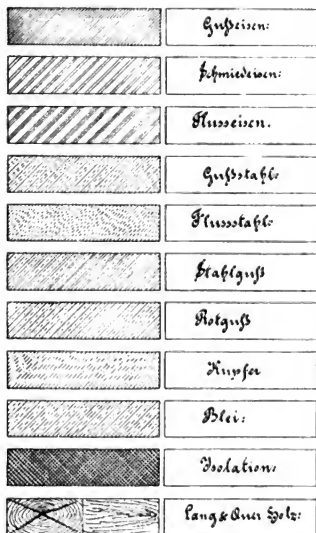 Gußeisen:
Schmiedeisen:
Flusseisen.
Gußstahl:
Flussstahl:
Stahlguß
Rotguß
Kupfer
Blei:
Isolation:
Lang & Quer Holz: